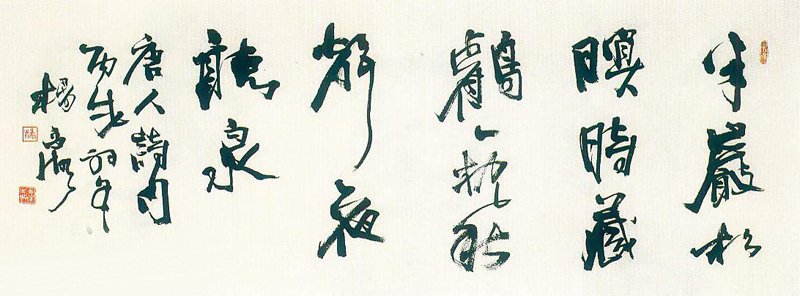 半巖松
暝時藏
鶴一枕秋
聲夜
聽泉
唐人詩句
丙戌
楊